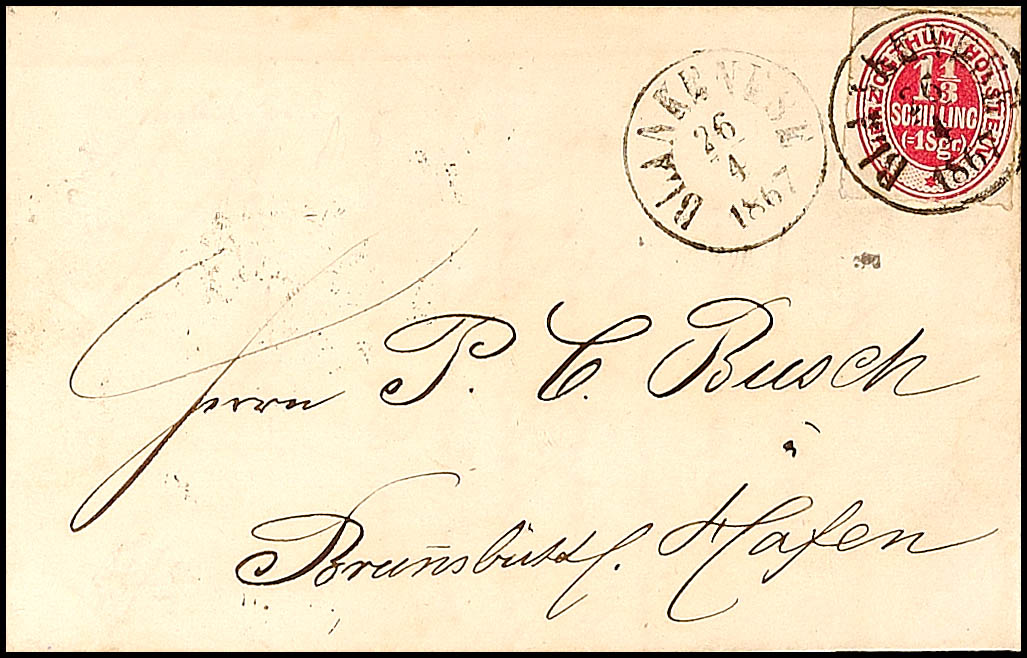 BLANKENESE
26
4
1867
HERZOGTHUM HOLSTEIN
1 1/3
SCHILLING
(=1Sgr.)
BLANKENESE
26
4
1867
Herrn P. C. Busch
Brunsbüttl. Hafen